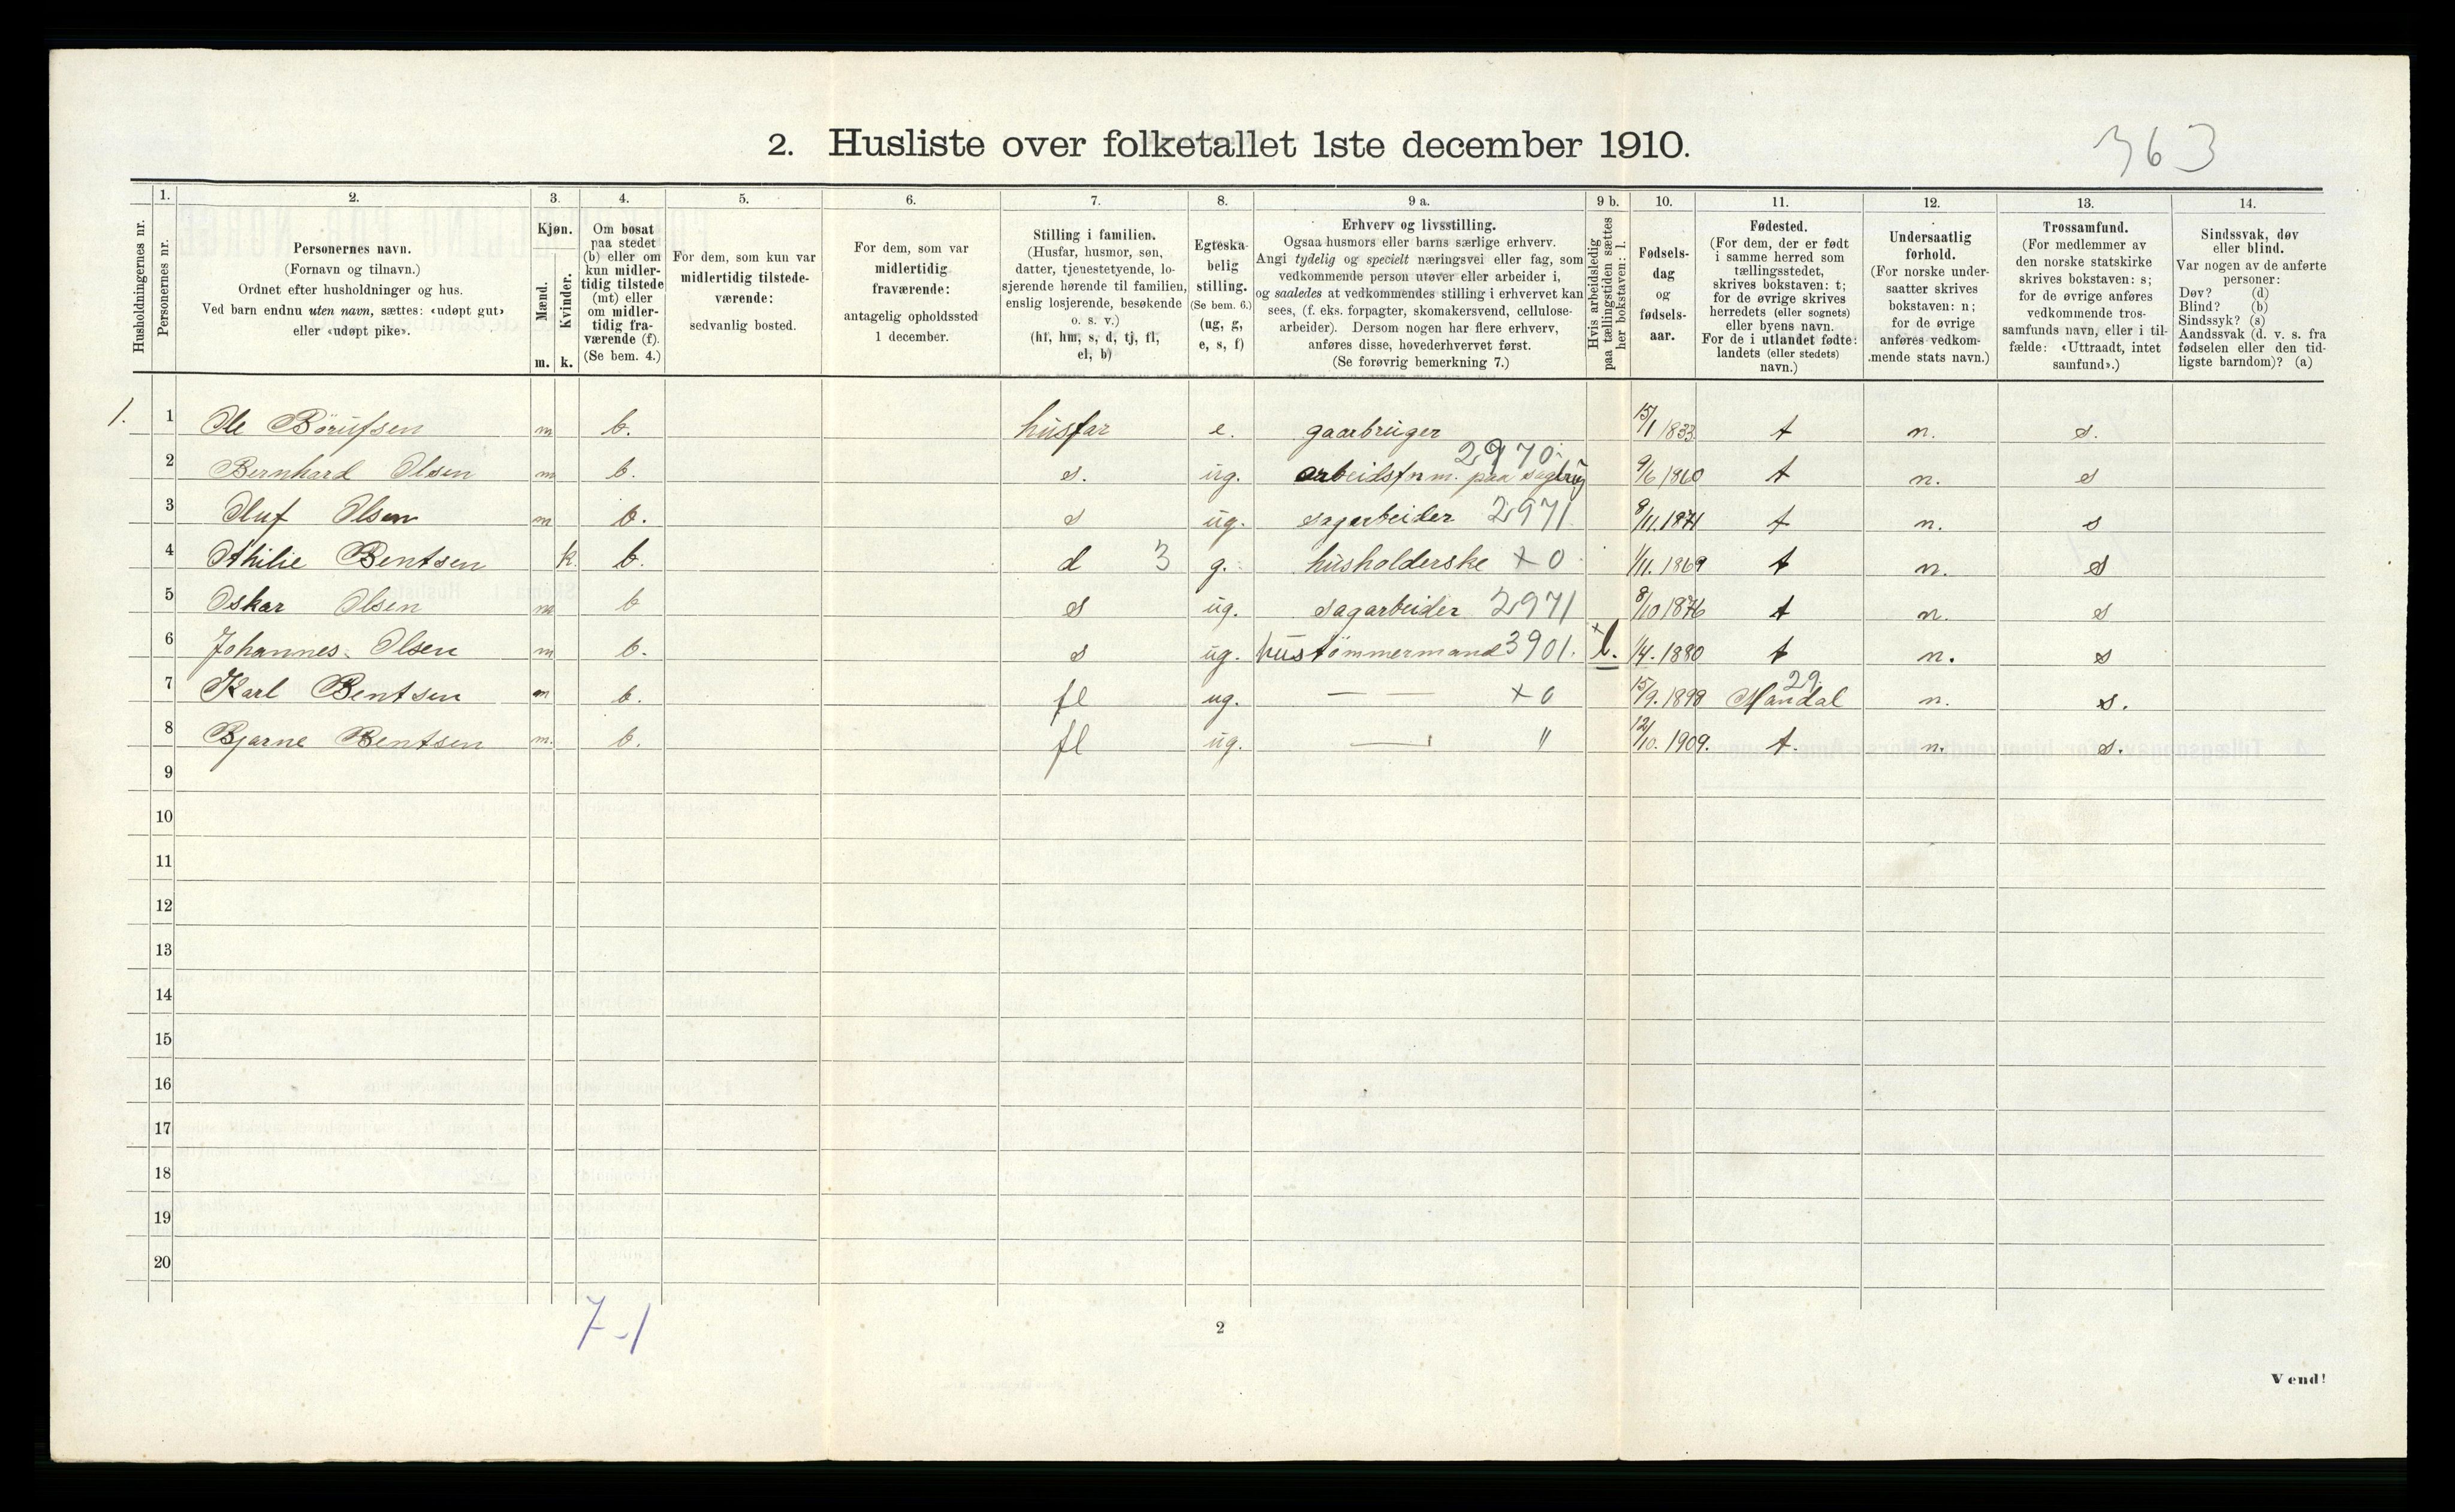 2. Husliste over folketallet 1ste december 1910.
363
Husholdningernes nr.
1.
Personernes nr.
2.
Personernes navn.
(Fornavn og tilnavn.)
Ordnet efter husholdninger og hus.
Ved barn endnu uten navn, sættes: «udøpt gut»
eller «udøpt pike».
3.
Kjøn.
Mænd.
Kvinder.
m. k.
4.
Om bosat
paa stedet
(b) eller om
kun midler-
tidig tilstede
(mt) eller
om midler-
tidig fra-
værende (f).
(Se bem. 4.)
5.
For dem, som kun var
midlertidig tilstede-
værende:
sedvanlig bosted.
6.
For dem, som var
midlertidig
fraværende:
antagelig opholdssted
1 december.
7.
Stilling i familien.
(Husfar, husmor, søn,
datter, tjenestetyende, lo-
sjerende hørende til familien,
enslig losjerende, besøkende
o. s. v.)
(hf, hm, s, d, tj, fl,
el, b)
8.
Egteska-
belig
stilling.
(Se bem. 6.)
(ug, g,
e, s, f)
9 a.
Erhverv og livsstilling.
Ogsaa husmors eller barns særlige erhverv.
Angi tydelig og specielt næringsvei eller fag, som
vedkommende person utøver eller arbeider i,
og saaledes at vedkommendes stilling i erhvervet kan
sees, (f. eks. forpagter, skomakersvend, cellulose-
arbeider). Dersom nogen har flere erhverv,
anføres disse, hovederhvervet først.
(Se forøvrig bemerkning 7.)
9 b.
Hvis arbeidsledig
paa tællingstiden sættes
her bokstaven: l.
10.
Fødsels-
dag
og
fødsels-
aar.
11.
Fødested.
(For dem, der er født
i samme herred som
tællingsstedet,
skrives bokstaven: t;
for de øvrige skrives
herredets (eller sognets)
eller byens navn.
For de i utlandet fødte:
landets (eller stedets)
navn.)
12.
Undersaatlig
forhold.
(For norske under-
saatter skrives
bokstaven: n;
for de øvrige
anføres vedkom-
mende stats navn.)
13.
Trossamfund.
(For medlemmer av
den norske statskirke
skrives bokstaven: s;
for de øvrige anføres
vedkommende tros-
samfunds navn, eller i til-
fælde: «Uttraadt, intet
samfund».)
14.
Sindssvak, døv
eller blind.
Var nogen av de anførte
personer:
Døv? (d)
Blind? (b)
Sindssyk? (s)
Aandssvak (d. v. s. fra
fødselen eller den tid-
ligste barndom)? (a)
1. 1 Ole Börufsen m b. husfar e. gaarbruger 15/1 1833 t n. s.
2970.
2 Bernhard Olsen m b. s. ug. arbeidsform. paa sagbrug 9/6 1860 t n. s
3 Oluf Olsen m b. s ug. sagarbeider 2971 8/11.1871 t n. s
4 Athilie Bentsen k. b. d 3 g. husholderske x 0 1/11. 1869 t n. s
5 Oskar Olsen m b s ug. sagarbeider 2971 8/10 1876 t n. s
6 Johannes Olsen m b. s ug. hustömmermand 3901. x l. 1/4. 1880 t n. s
29.
7 Karl Bentsen m b. fl ug. — — x 0 15/9. 1898 Mandal n. s.
8 Bjarne Bentsen m. b. fl ug. — " 12/10. 1909. t. n. s.
9
10
11
12
13
14
15
16
17
18
19
20
7-1
2
Vend!